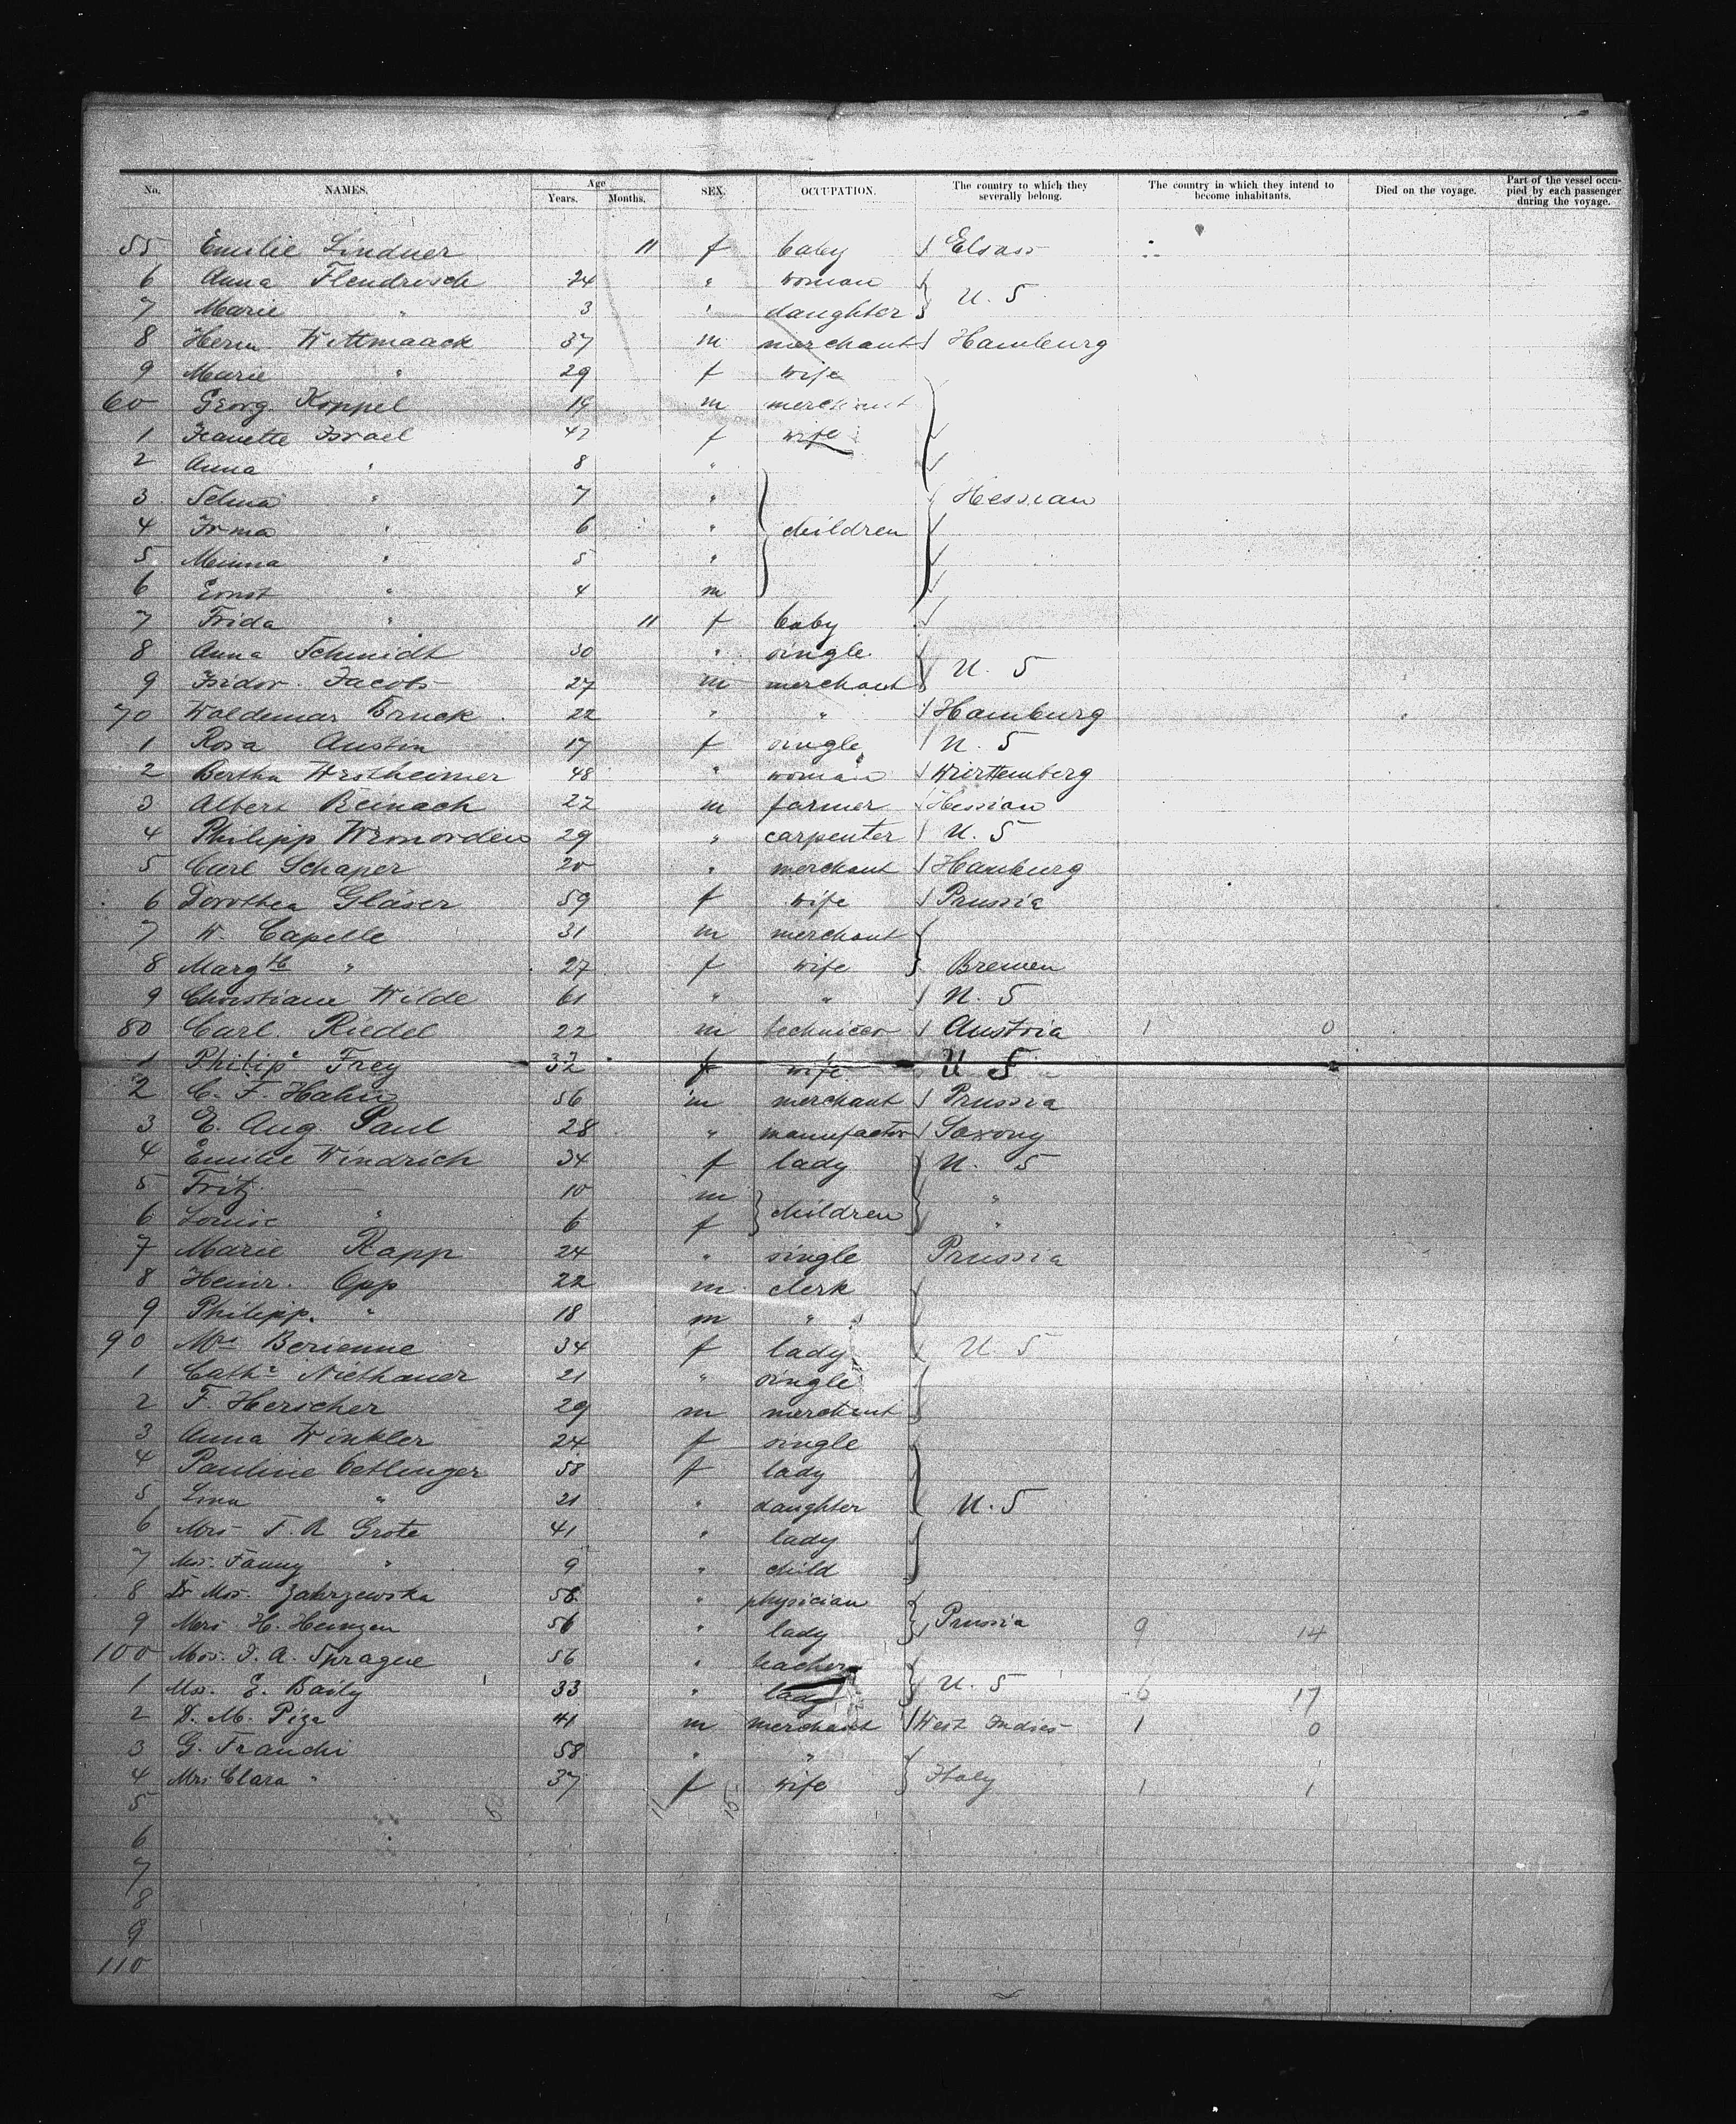 No. NAMES. Age Years. Months. SEX. OCCUPATION. The country to which they severally belong. The country in which they intend to become inhabitants. Died on the voyage. Part of the vessel occupied by each passenger during the voyage.
55 Emilie Lindner 11 f baby Elsass
6 Anna Flendrisch 24 " woman } U. S
7 Marie " 3 " daughter
8 Herm Wittmaack 37 m merchant Hamburg
9 Marie " 29 f wife
60 Georg Koppel 19 m merchant
1 Jeanette Israel 47 f wife
2 Anna " 8 "
3 Selma " 7 " Hessian
4 Irma " 6 " children
5 Minna " 5 "
6 Ernst " 4 m
7 Frida " 11 f baby
8 Anna Schmidt 30 " single } U. S
9 Isidor Jacobs 27 m merchant
70 Woldemar Bruck 22 " " Hamburg
1 Rosa Austin 17 f single U. S
2 Bertha Westheimer 48 " woman Württemberg
3 Albert Beinach 22 m farmer Hessian
4 Philipp 29 " carpenter U. S
5 Carl Schaper 20 " merchant Hamburg
6 Dorothea Gläser 59 f wife Prussia
7 W. Capelle 31 m merchant
8 Margth " 27 f wife } Bremen
9 Christiane Wilde 61 " " U. S
80 Carl Riedel 22 m Austria 1 0
1 Philipe Frey 32 f wife U S
2 C. F. Hahn 56 m merchant Prussia
3 E. Aug. Paul 28 " manufactor Saxony
4 Emilie Windrich 34 f lady U. S
5 Fritz 10 m } children "
6 Louise " 6 f "
7 Marie Rapp 24 " single Prussia
8 Heinr. Opp 22 m clerk
9 Philipp. " 18 m "
90 Mrs Berienne 34 f lady U S
1 Cathe Niethauer 21 " single
2 F. Herscher 29 m merchant
3 Anna Winkler 24 f single
4 Pauline Oetlinger 58 f lady
5 Lina " 21 " daughter U. S
6 Mrs F. A Grote 41 " lady
7 Mss. Fanny " 9 " child
8 Dr Mss. Zakrzewska 58 " physician
9 Mrs. H. Heinzen 56 " lady } Prussia 9 14
100 Mss. J. A. Sprague 56 " teacher
1 Mss. E. Baily 33 " lady } U. S 6 17
2 D. M. Piza 41 m merchant West Indies 1 0
3 G. Franchi 58 " "
4 Mrs Clara " 37 f wife } Italy 1 1
5 11 15
6
7
8
9
110